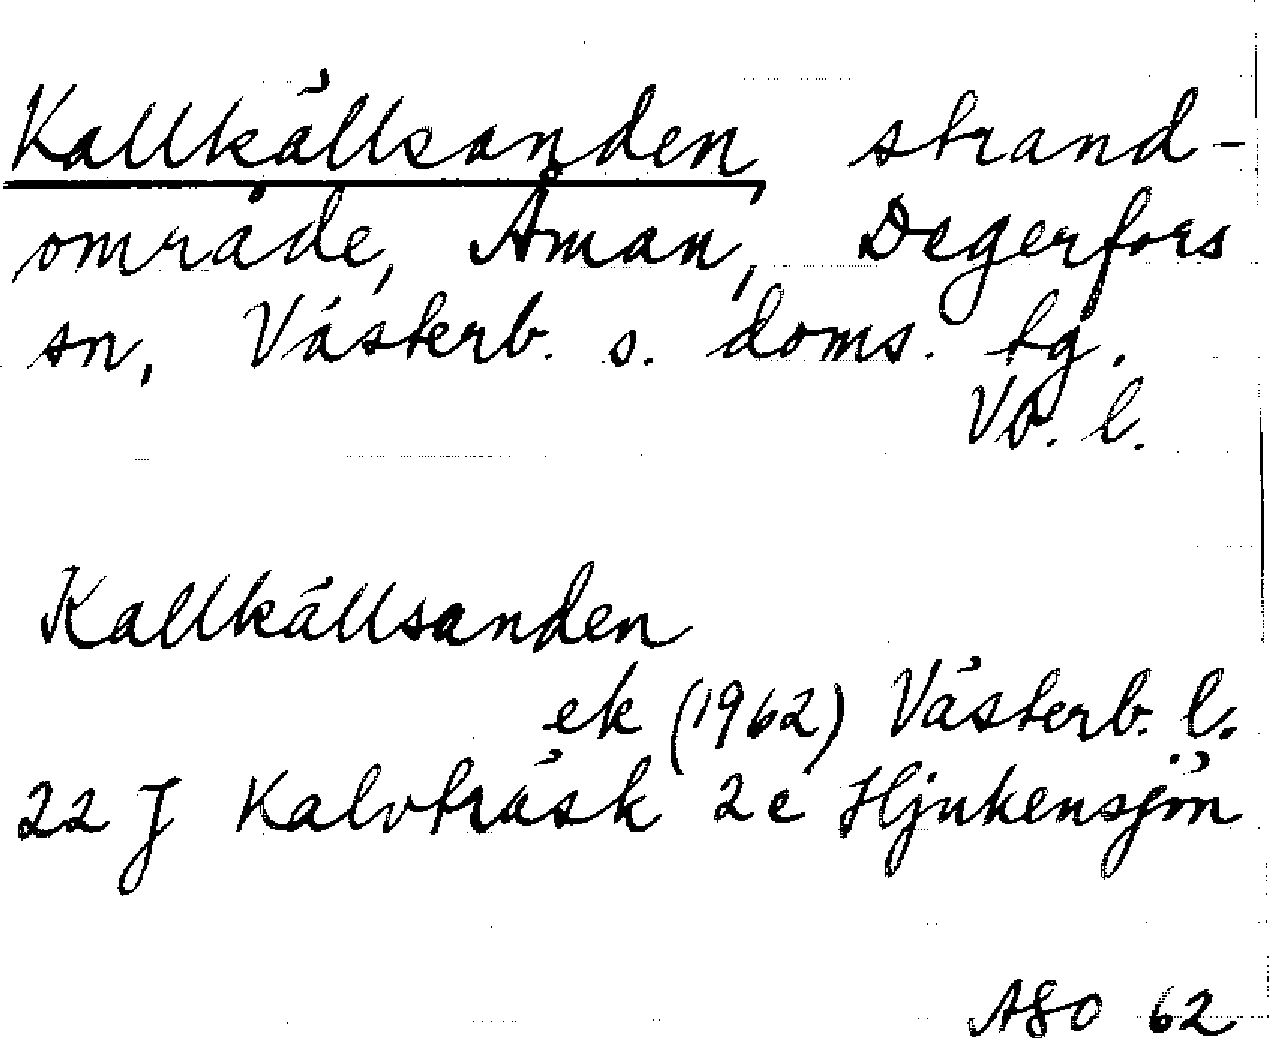 Kallkällsanden, strand-
område, Åman, Degerfors
sn, Västerb. s. doms. tg.
Vb. l.
Kallkällsanden
ek (1962) Västerb. l.
22 J Kalvträsk 2e Hjukensjön
ASO 62